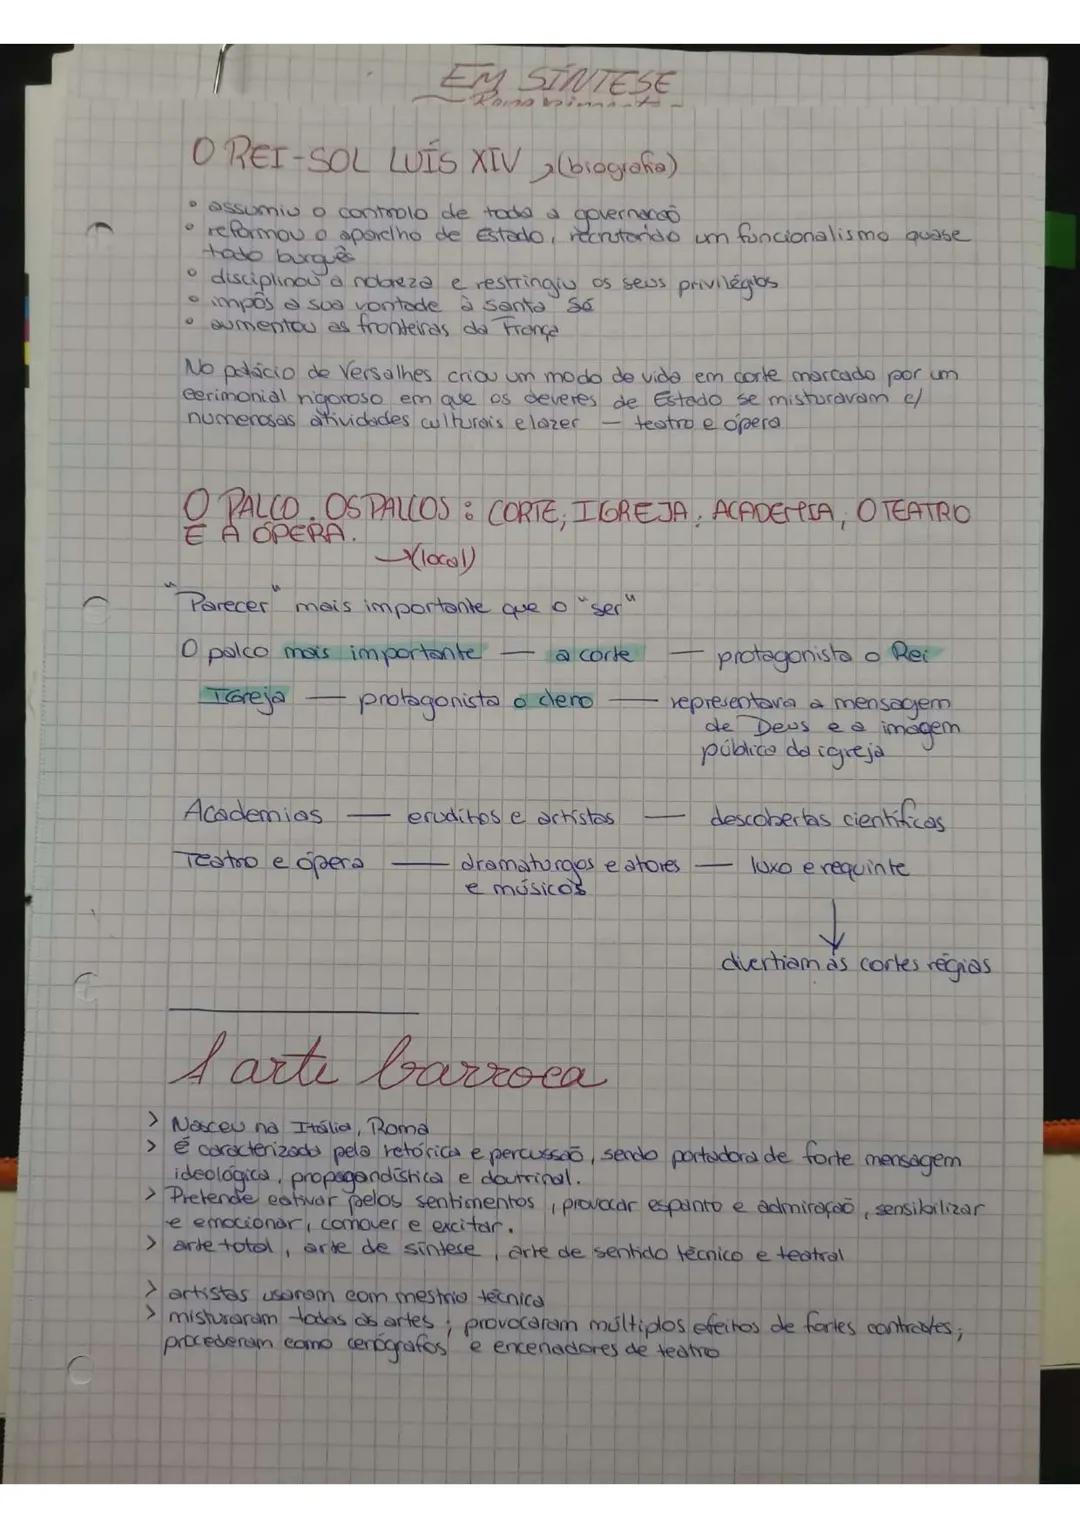 EM SÍNTESE
O REI-SOL LUÍS XIV (biografia)
• assumiu o controlo de toda a governação
• reformou o aparelho de Estado, recrutando um funcionalismo quase
todo burguês
• disciplinou a nobreza e restringiu os seus privilégios
• impôs a sua vontade à Santa Sé
• aumentou as fronteiras da França
No palácio de Versalhes criou um modo de vida em corte marcado por um
cerimonial rigoroso em que os deveres de Estado se misturavam c/
numerosas atividades culturais e lazer — teatro e ópera
O PALCO. OS PALCOS: CORTE, IGREJA, ACADEMIA, O TEATRO
E A ÓPERA.
→ (local)
"Parecer" mais importante que o "ser"
O palco mais importante — a corte — protagonista o Rei
Igreja — protagonista o clero — representava a mensagem
de Deus e a imagem
pública da igreja
Academias — eruditos e artistas — descobertas científicas
Teatro e ópera — dramaturgos e atores — luxo e requinte
e músicos
↓
divertiam as cortes régias
A arte barroca
> Nasceu na Itália, Roma
> é caracterizada pela retórica e percussão, sendo portadora de forte mensagem
ideológica, propagandística e doutrinal.
> Pretende cativar pelos sentimentos, provocar espanto e admiração, sensibilizar
e emocionar, comover e excitar.
> arte total, arte de síntese, arte de sentido técnico e teatral
> artistas usaram com mestria técnica
> misturaram todas as artes; provocaram múltiplos efeitos de fortes contrastes;
procederam como cenógrafos e encenadores de teatro